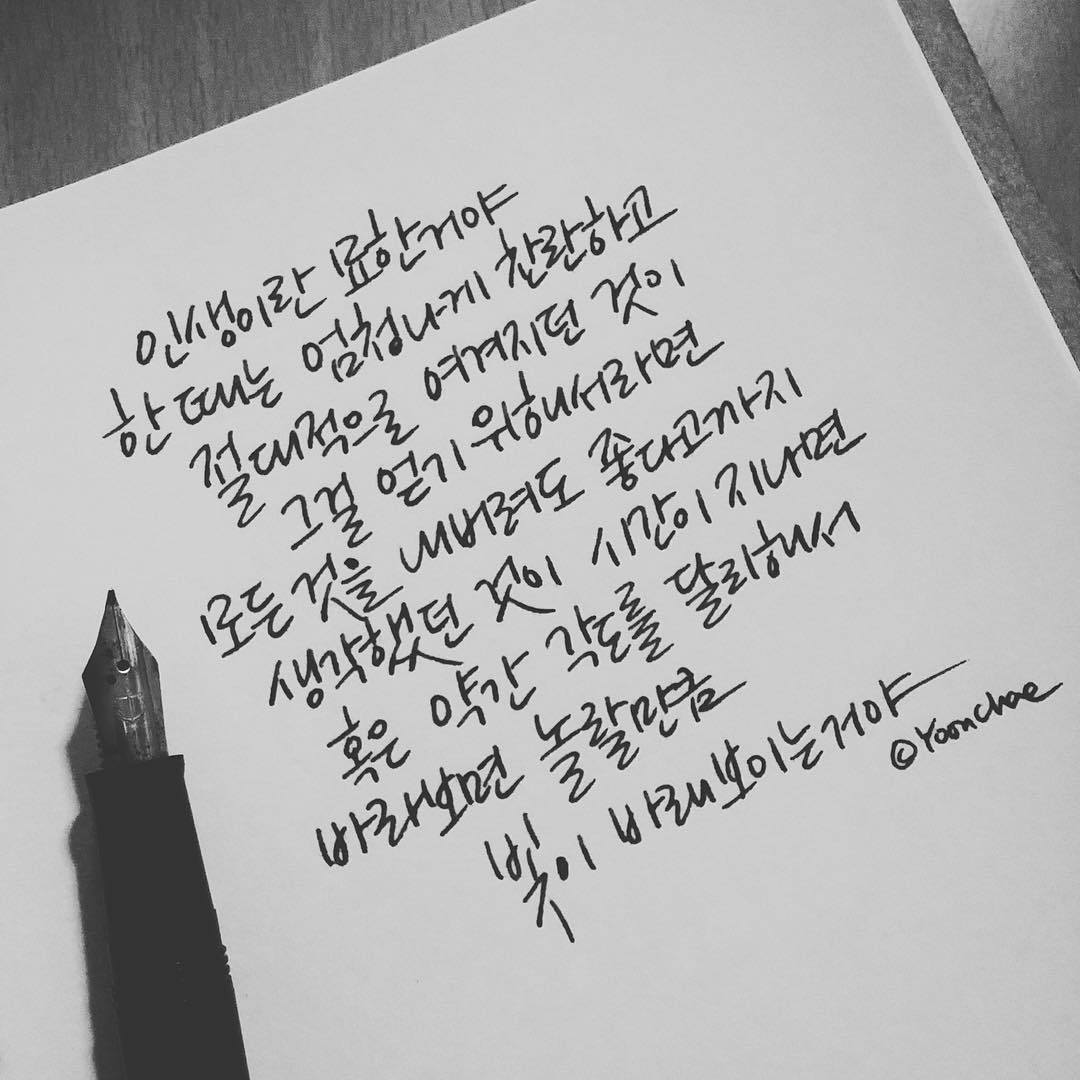 인생이란 묘한거야
한때는 엄청나게 찬란하고
절대적으로 여겨지던 것이
그걸 얻기 위해서라면
모든것을 내버려도 좋다고까지
생각했던 것이 시간이 지나면
혹은 약간 각도를 달리해서
바라보면 놀랄만큼
빛이 바래보이는거야
©Yoonchae